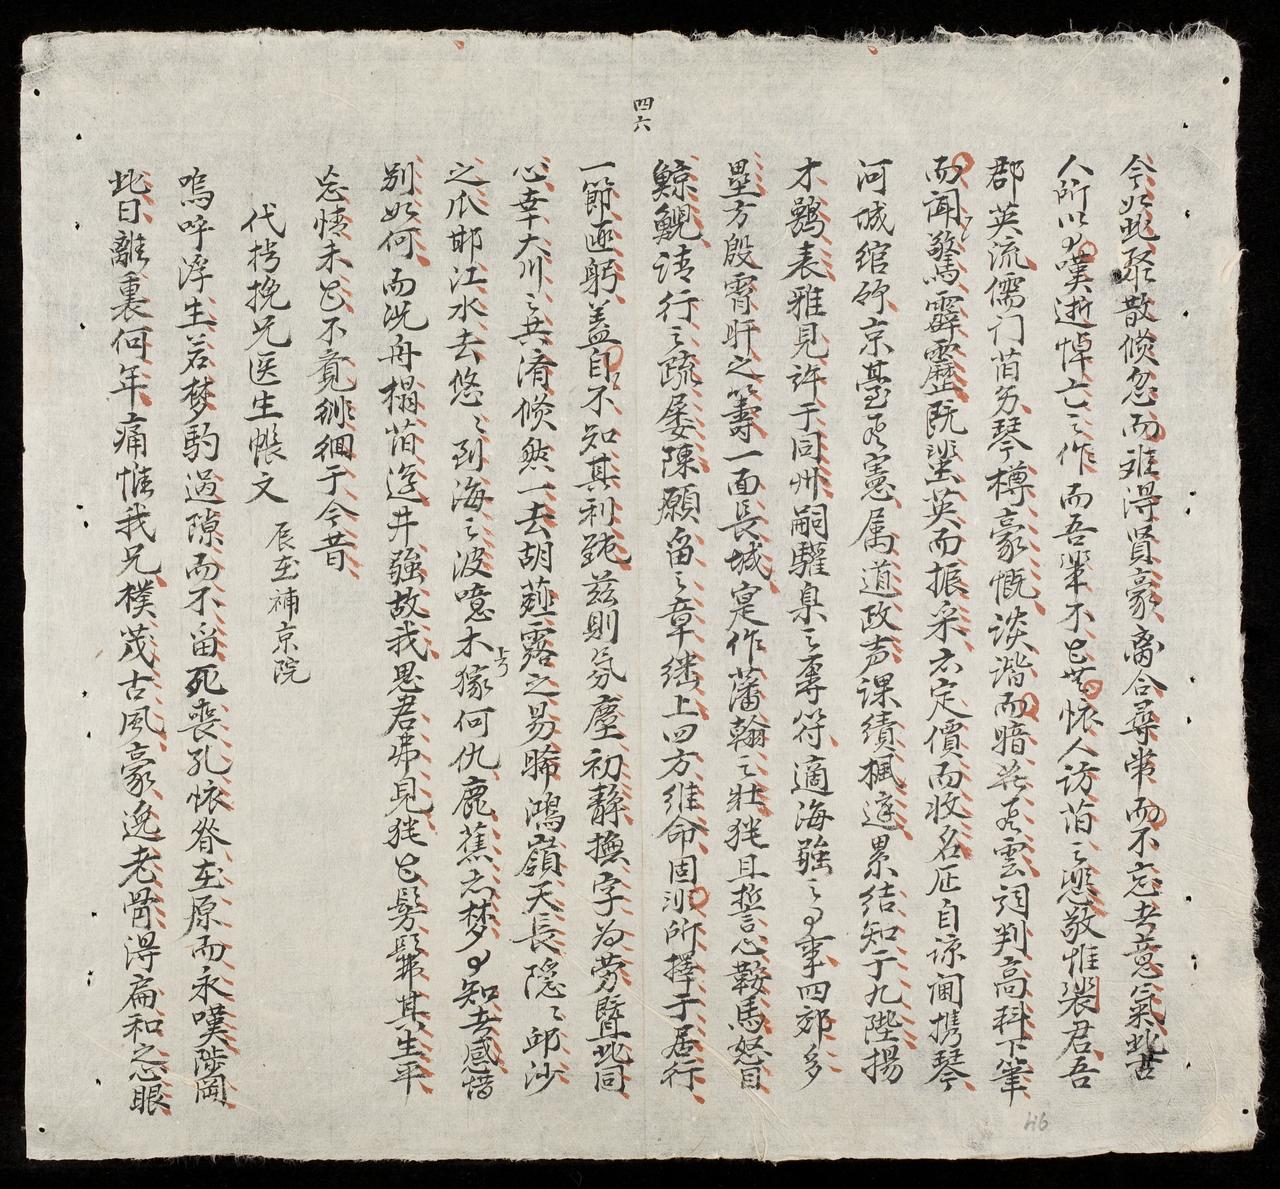 四六
今如此聚散倏忽而难得賢豪离合尋常而不忘者意氣此古
人所以嘆逝悼亡之作而吾輩不已懷人访旧之悲敬惟裴君吾
郡英流儒门旧易琴樽豪慨談谐而暗若雲詞判高科下筆
而闻驚霹靂登英而振采亦定價而收名匠自諒闽携琴
河城绾竹京臺憲属道政声課績楓庭累结知于九陛揚
才鶚表雅見许于同州嗣驩臬之專符適海強之事四郊多
壘方殷霄旰之籌一面長城寔作藩翰之壯猶且誓心鞍馬怒目
鯨鯢请行之疏屡陳願留之章继上四方维命固非所擇于居行
一節匪躬盖自不知其利鈍兹則氛塵初静撫字为勞暨此同
心幸大川之共濟倏然一去胡薤露之易晞鴻嶺天長隐之邱沙
之爪邯江水去悠之到海之波噫木猴何仇鹿蕉亦梦知者感惜
别如何而况舟榻旧筵井強故我思君弗見猶已髣髴其生平
忘情未已不竟徘徊于今昔
代挽兄医生帳文 辰在補京院
嗚呼浮生若梦駒過隙而不留死喪孔懷脊在原而永嘆陟岡
此日離裏何年痛惟我兄樸茂古風豪逸老骨得扁和之心眼
46